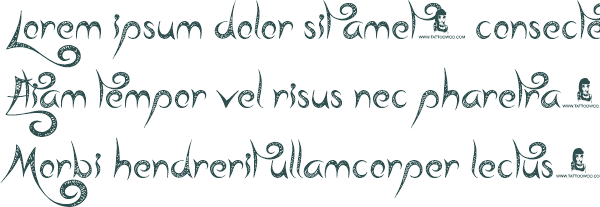 Lorem ipsum dolor sit amet WWW.TATTOOWOO.COM consecte
Aliam tempor vel risus nec pharetra WWW.TATTOOWOO.
Morbi hendrerit ullamcorper lectus WWW.TATTOOWOO.CO